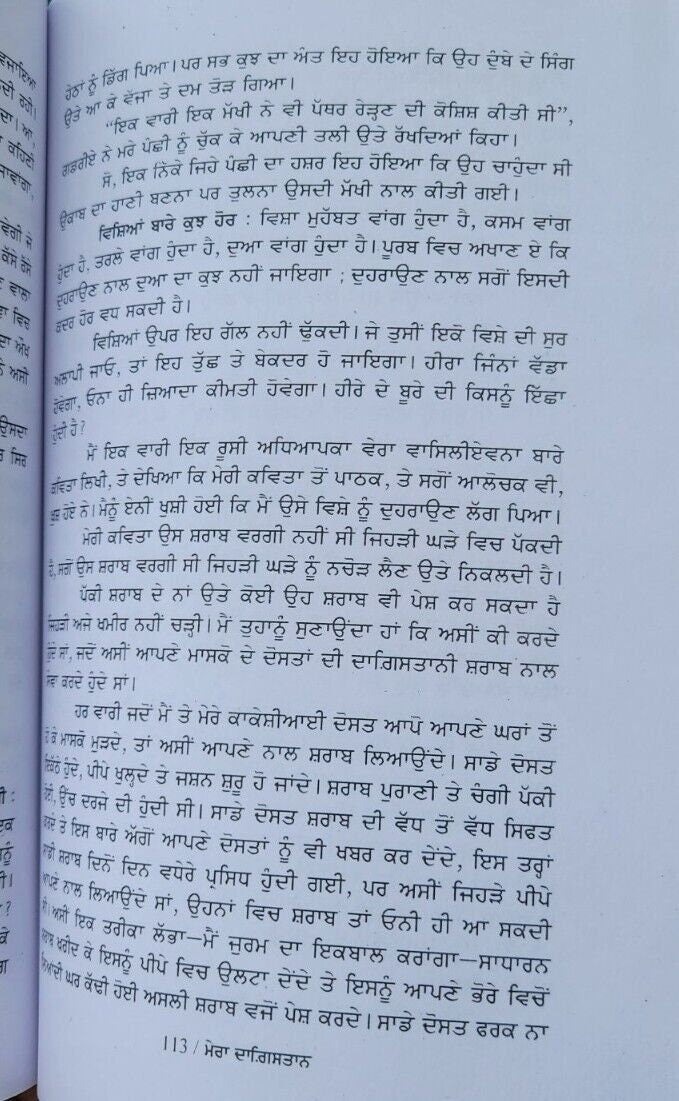 ਹੇਠਾਂ ਨੂੰ ਡਿੱਗ ਪਿਆ। ਪਰ ਸਭ ਕੁਝ ਦਾ ਅੰਤ ਇਹ ਹੋਇਆ ਕਿ ਉਹ ਦੁੰਬੇ ਦੇ ਸਿੰਗ
ਉਤੇ ਆ ਕੇ ਵੱਜਾ ਤੇ ਦਮ ਤੋੜ ਗਿਆ।
“ਇਕ ਵਾਰੀ ਇਕ ਮੱਖੀ ਨੇ ਵੀ ਪੱਥਰ ਰੇੜ੍ਹਣ ਦੀ ਕੋਸ਼ਿਸ਼ ਕੀਤੀ ਸੀ”,
ਗਡਰੀਏ ਨੇ ਮਰੇ ਪੰਛੀ ਨੂੰ ਚੁੱਕ ਕੇ ਆਪਣੀ ਤਲੀ ਉਤੇ ਰੱਖਦਿਆਂ ਕਿਹਾ।
ਸੋ, ਇਕ ਨਿੱਕੇ ਜਿਹੇ ਪੰਛੀ ਦਾ ਹਸ਼ਰ ਇਹ ਹੋਇਆ ਕਿ ਉਹ ਚਾਹੁੰਦਾ ਸੀ
ਉਕਾਬ ਦਾ ਹਾਣੀ ਬਣਨਾ ਪਰ ਤੁਲਨਾ ਉਸਦੀ ਮੱਖੀ ਨਾਲ ਕੀਤੀ ਗਈ।
ਵਿਸ਼ਿਆਂ ਬਾਰੇ ਕੁਝ ਹੋਰ : ਵਿਸ਼ਾ ਮੁਹੱਬਤ ਵਾਂਗ ਹੁੰਦਾ ਹੈ, ਕਸਮ ਵਾਂਗ
ਹੁੰਦਾ ਹੈ, ਤਰਲੇ ਵਾਂਗ ਹੁੰਦਾ ਹੈ, ਦੁਆ ਵਾਂਗ ਹੁੰਦਾ ਹੈ। ਪੂਰਬ ਵਿਚ ਅਖਾਣ ਏ ਕਿ
ਦੁਹਰਾਉਣ ਨਾਲ ਦੁਆ ਦਾ ਕੁਝ ਨਹੀਂ ਜਾਇਗਾ ; ਦੁਹਰਾਉਣ ਨਾਲ ਸਗੋਂ ਇਸਦੀ
ਕਦਰ ਹੋਰ ਵਧ ਸਕਦੀ ਹੈ।
ਵਿਸ਼ਿਆਂ ਉਪਰ ਇਹ ਗੱਲ ਨਹੀਂ ਢੁੱਕਦੀ। ਜੇ ਤੁਸੀਂ ਇਕੋ ਵਿਸ਼ੇ ਦੀ ਸੁਰ
ਅਲਾਪੀ ਜਾਓ, ਤਾਂ ਇਹ ਤੁੱਛ ਤੇ ਬੇਕਦਰ ਹੋ ਜਾਇਗਾ। ਹੀਰਾ ਜਿੰਨਾਂ ਵੱਡਾ
ਹੋਵੇਗਾ, ਓਨਾ ਹੀ ਜ਼ਿਆਦਾ ਕੀਮਤੀ ਹੋਵੇਗਾ। ਹੀਰੇ ਦੇ ਬੂਰੇ ਦੀ ਕਿਸਨੂੰ ਇੱਛਾ
ਹੁੰਦੀ ਹੈ?
ਮੈਂ ਇਕ ਵਾਰੀ ਇਕ ਰੂਸੀ ਅਧਿਆਪਕਾ ਵੇਰਾ ਵਾਸਿਲੀਏਵਨਾ ਬਾਰੇ
ਕਵਿਤਾ ਲਿਖੀ, ਤੇ ਦੇਖਿਆ ਕਿ ਮੇਰੀ ਕਵਿਤਾ ਤੋਂ ਪਾਠਕ, ਤੇ ਸਗੋਂ ਆਲੋਚਕ ਵੀ,
ਖੁਸ਼ ਹੋਏ ਨੇ। ਮੈਨੂੰ ਏਨੀਂ ਖੁਸ਼ੀ ਹੋਈ ਕਿ ਮੈਂ ਉਸੇ ਵਿਸ਼ੇ ਨੂੰ ਦੁਹਰਾਉਣ ਲੱਗ ਪਿਆ।
ਮੇਰੀ ਕਵਿਤਾ ਉਸ ਸ਼ਰਾਬ ਵਰਗੀ ਨਹੀਂ ਸੀ ਜਿਹੜੀ ਘੜੇ ਵਿਚ ਪੱਕਦੀ
ਹੈ, ਸਗੋਂ ਉਸ ਸ਼ਰਾਬ ਵਰਗੀ ਸੀ ਜਿਹੜੀ ਘੜੇ ਨੂੰ ਨਚੋੜ ਲੈਣ ਉਤੇ ਨਿਕਲਦੀ ਹੈ।
ਪੱਕੀ ਸ਼ਰਾਬ ਦੇ ਨਾਂ ਉਤੇ ਕੋਈ ਉਹ ਸ਼ਰਾਬ ਵੀ ਪੇਸ਼ ਕਰ ਸਕਦਾ ਹੈ
ਜਿਹੜੀ ਅਜੇ ਖਮੀਰ ਨਹੀਂ ਚੜ੍ਹੀ। ਮੈਂ ਤੁਹਾਨੂੰ ਸੁਣਾਉਂਦਾ ਹਾਂ ਕਿ ਅਸੀਂ ਕੀ ਕਰਦੇ
ਹੁੰਦੇ ਸਾਂ, ਜਦੋਂ ਅਸੀਂ ਆਪਣੇ ਮਾਸਕੋ ਦੇ ਦੋਸਤਾਂ ਦੀ ਦਾਗ਼ਿਸਤਾਨੀ ਸ਼ਰਾਬ ਨਾਲ
ਸੇਵਾ ਕਰਦੇ ਹੁੰਦੇ ਸਾਂ।
ਹਰ ਵਾਰੀ ਜਦੋਂ ਮੈਂ ਤੇ ਮੇਰੇ ਕਾਕੇਸ਼ੀਆਈ ਦੋਸਤ ਆਪੋ ਆਪਣੇ ਘਰਾਂ ਤੋਂ
ਹੋ ਕੇ ਮਾਸਕੋ ਮੁੜਦੇ, ਤਾਂ ਅਸੀਂ ਆਪਣੇ ਨਾਲ ਸ਼ਰਾਬ ਲਿਆਉਂਦੇ। ਸਾਡੇ ਦੋਸਤ
ਇਕੱਠੇ ਹੁੰਦੇ, ਪੀਪੇ ਖੁਲ੍ਹਦੇ ਤੇ ਜਸ਼ਨ ਸ਼ੁਰੂ ਹੋ ਜਾਂਦੇ। ਸ਼ਰਾਬ ਪੁਰਾਣੀ ਤੇ ਚੰਗੀ ਪੱਕੀ
ਹੋਈ, ਉੱਚ ਦਰਜੇ ਦੀ ਹੁੰਦੀ ਸੀ। ਸਾਡੇ ਦੋਸਤ ਸ਼ਰਾਬ ਦੀ ਵੱਧ ਤੋਂ ਵੱਧ ਸਿਫਤ
ਕਰਦੇ ਤੇ ਇਸ ਬਾਰੇ ਅੱਗੋਂ ਆਪਣੇ ਦੋਸਤਾਂ ਨੂੰ ਵੀ ਖਬਰ ਕਰ ਦੇਂਦੇ, ਇਸ ਤਰ੍ਹਾਂ
ਸਾਡੀ ਸ਼ਰਾਬ ਦਿਨੋਂ ਦਿਨ ਵਧੇਰੇ ਪ੍ਰਸਿਧ ਹੁੰਦੀ ਗਈ, ਪਰ ਅਸੀਂ ਜਿਹੜੇ ਪੀਪੇ
ਆਪਣੇ ਨਾਲ ਲਿਆਉਂਦੇ ਸਾਂ, ਉਹਨਾਂ ਵਿਚ ਸ਼ਰਾਬ ਤਾਂ ਓਨੀ ਹੀ ਆ ਸਕਦੀ
ਸੀ। ਅਸੀਂ ਇਕ ਤਰੀਕਾ ਲੱਭਾ—ਮੈਂ ਜੁਰਮ ਦਾ ਇਕਬਾਲ ਕਰਾਂਗਾ—ਸਾਧਾਰਨ
ਸ਼ਰਾਬ ਖਰੀਦ ਕੇ ਇਸਨੂੰ ਪੀਪੇ ਵਿਚ ਉਲਟਾ ਦੇਂਦੇ ਤੇ ਇਸਨੂੰ ਆਪਣੇ ਭੋਰੇ ਵਿਚੋਂ
ਲਿਆਂਦੀ ਘਰ ਕੱਢੀ ਹੋਈ ਅਸਲੀ ਸ਼ਰਾਬ ਵਜੋਂ ਪੇਸ਼ ਕਰਦੇ। ਸਾਡੇ ਦੋਸਤ ਫਰਕ ਨਾ
113 / ਮੇਰਾ ਦਾਗ਼ਿਸਤਾਨ